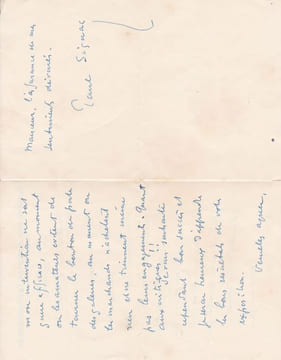 mon intervention ne soit
pas efficace, au moment
où les amateurs évitent de
tourner le bouton de porte
des galeries. Au moment où
les marchands n'achètent
rien et ne tiennent même
pas leurs engagements. Quant
aux intrigues !!
Je vous souhaite
cependant bon succès et
serai heureux d'apprendre
les bons résultats de votre
exposition.
Veuillez agréer,
Monsieur, l'assurance de mes
sentiments dévoués.
Paul Signac